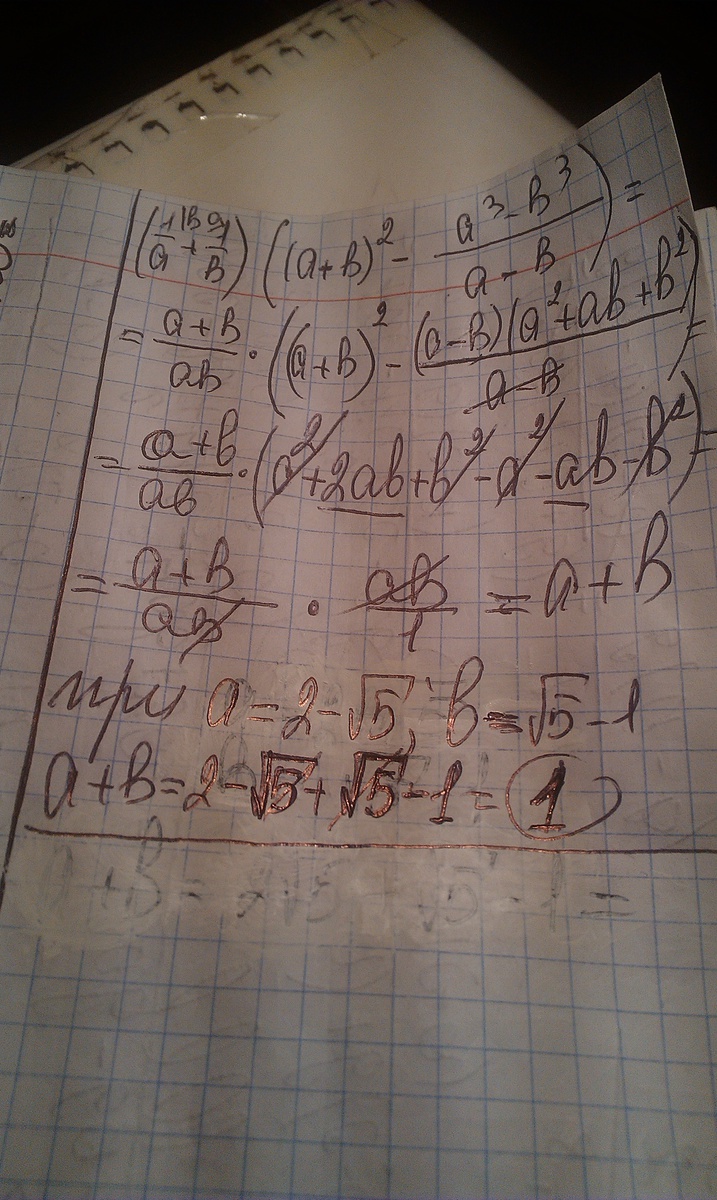 (1/a + 1/b) ((a+b)² - (a³-b³)/(a-b)) =
= (a+b)/(ab) · ((a+b)² - (a-b)(a²+ab+b²)/(a-b)) =
= (a+b)/(ab) · (a²+2ab+b²-a²-ab-b²) =
= (a+b)/(ab) · ab/1 = a+b
при a=2-√5; b=√5-1
a+b=2-√5+√5-1=1